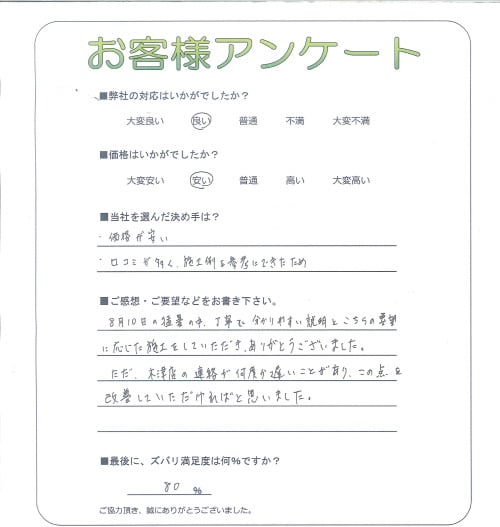 お客様アンケート
■弊社の対応はいかがでしたか？
大変良い 良い 普通 不満 大変不満
■価格はいかがでしたか？
大変安い 安い 普通 高い 大変高い
■当社を選んだ決め手は？
・価格が安い
・口コミが多く、施工例を参考にできたため
■ご感想・ご要望などをお書き下さい。
8月10日の猛暑の中、丁寧で分かりやすい説明とこちらの要望
に応じた施工をしていただき、ありがとうございました。
ただ、木津店の連絡が何度か遅いことがあり、この点を
改善していただければと思いました。
■最後に、ズバリ満足度は何%ですか？
80 %
ご協力頂き、誠にありがとうございました。